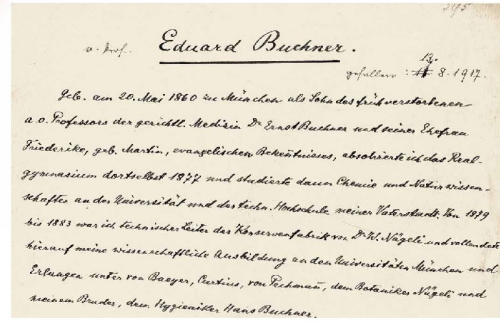 295
o. Prof. Eduard Buchner.
gefallen: 13. 8. 1917.
Geb. am 20. Mai 1860 zu München als Sohn des früh verstorbenen
a. o. Professors der gerichtl. Medizin Dr Ernst Buchner und seiner Ehefrau
Friederike, geb. Martin, evangelischen Bekenntnisses, absolvierte ich das Real-
gymnasium dortselbst 1877 und studierte dann Chemie und Naturwissen-
schaften an der Universität und der techn. Hochschule meiner Vaterstadt. Von 1879
bis 1883 war ich technischer Leiter der Konservenfabrik von Dr W. Nägeli und vollendete
hierauf meine wissenschaftliche Ausbildung an den Universitäten München und
Erlangen unter von Baeyer, Curtius, von Pechmann, dem Botaniker Nägeli und
meinem Bruder, dem Hygieniker Hans Buchner.